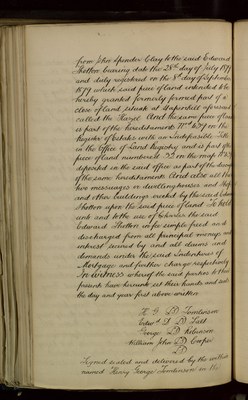 from John Spender Clay to the said Edward
Shotton bearing date the 28th day of July 1877
and duly registered on the 8th day of September
1877 which said piece of land intended to be
hereby granted formerly formed part of a
close of land situate at aforesaid
called the And the same piece of land
is part of the hereditaments No on the
Register of Estates with an Indefeasible Title
in the Office of Land Registry and is part of the
piece of land numbered on the map
deposited in the said office as part of the description
of the same hereditaments And also all those
two messuages or dwellinghouses and
and other buildings erected by the said Edward
Shotton upon the said piece of land To hold
unto and to the use of the said
Edward Shotton in fee simple freed and
discharged from all principal moneys and
interest secured by and all claims and
demands under the said Indentures of
Mortgage and further charge respectively
In witness whereof the said parties to these
presents have hereunto set their hands and seals
the day and year first above written
H G LD Tomlinson
LD
George LD Robinson
William John LD Cooper
LD
Signed sealed and delivered by the within
named Henry George Tomlinson in the